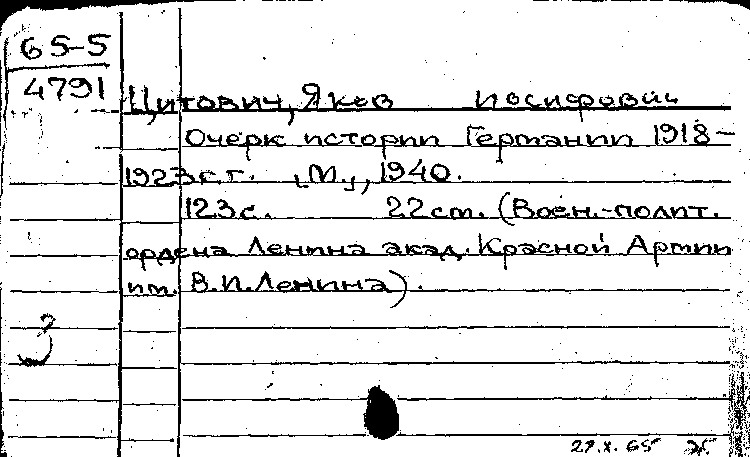 65-5
4791
Цитович, Яков Иосифович
Очерк истории Германии 1918-
1923 г.г. [М.], 1940.
123 с. 22 см. (Воен.-полит.
ордена Ленина акад. Красной Армии
им. В.И. Ленина).
3
29.X.65